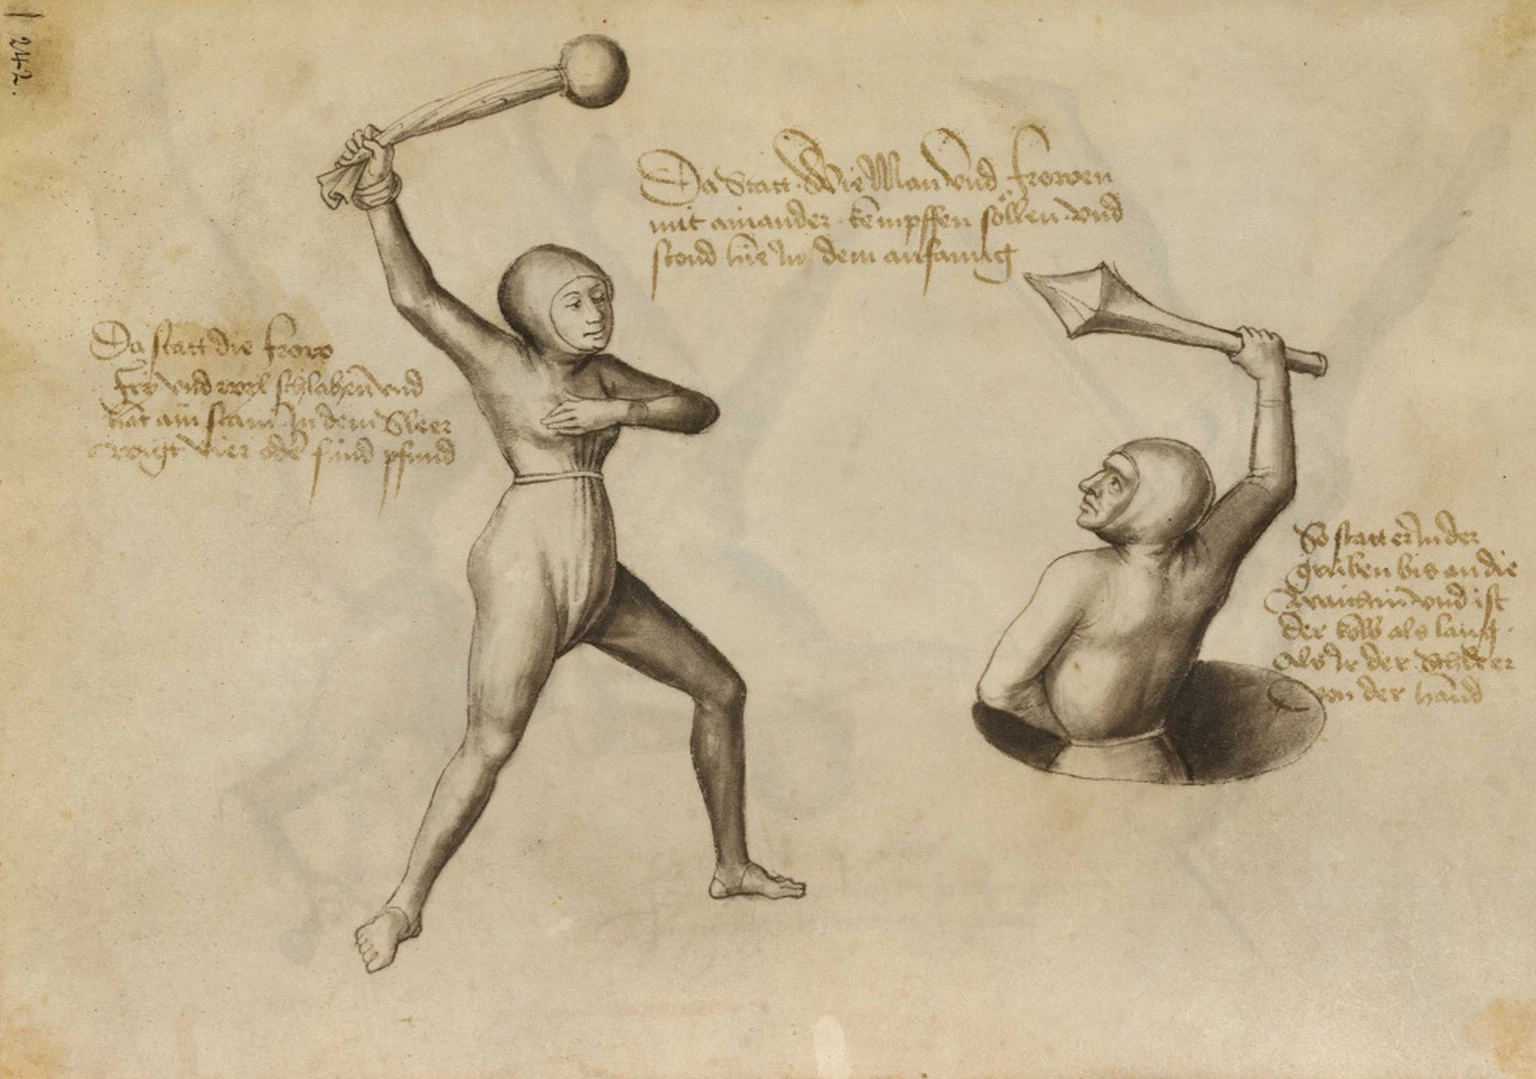 242.
Da Statt Wie Man vnd frowen
mit ainander kempffen söllen vnd
stond hie In dem anfanng
Da statt die frow
fry vnd wyl schlahen vnd
hat ain stain In dem Sleer
wigt vier oder fünd pfund
So statt er In der
gruben bis an die
waichin vnd ist
der kolb als lang
Als Ir der Schleer
von der hand